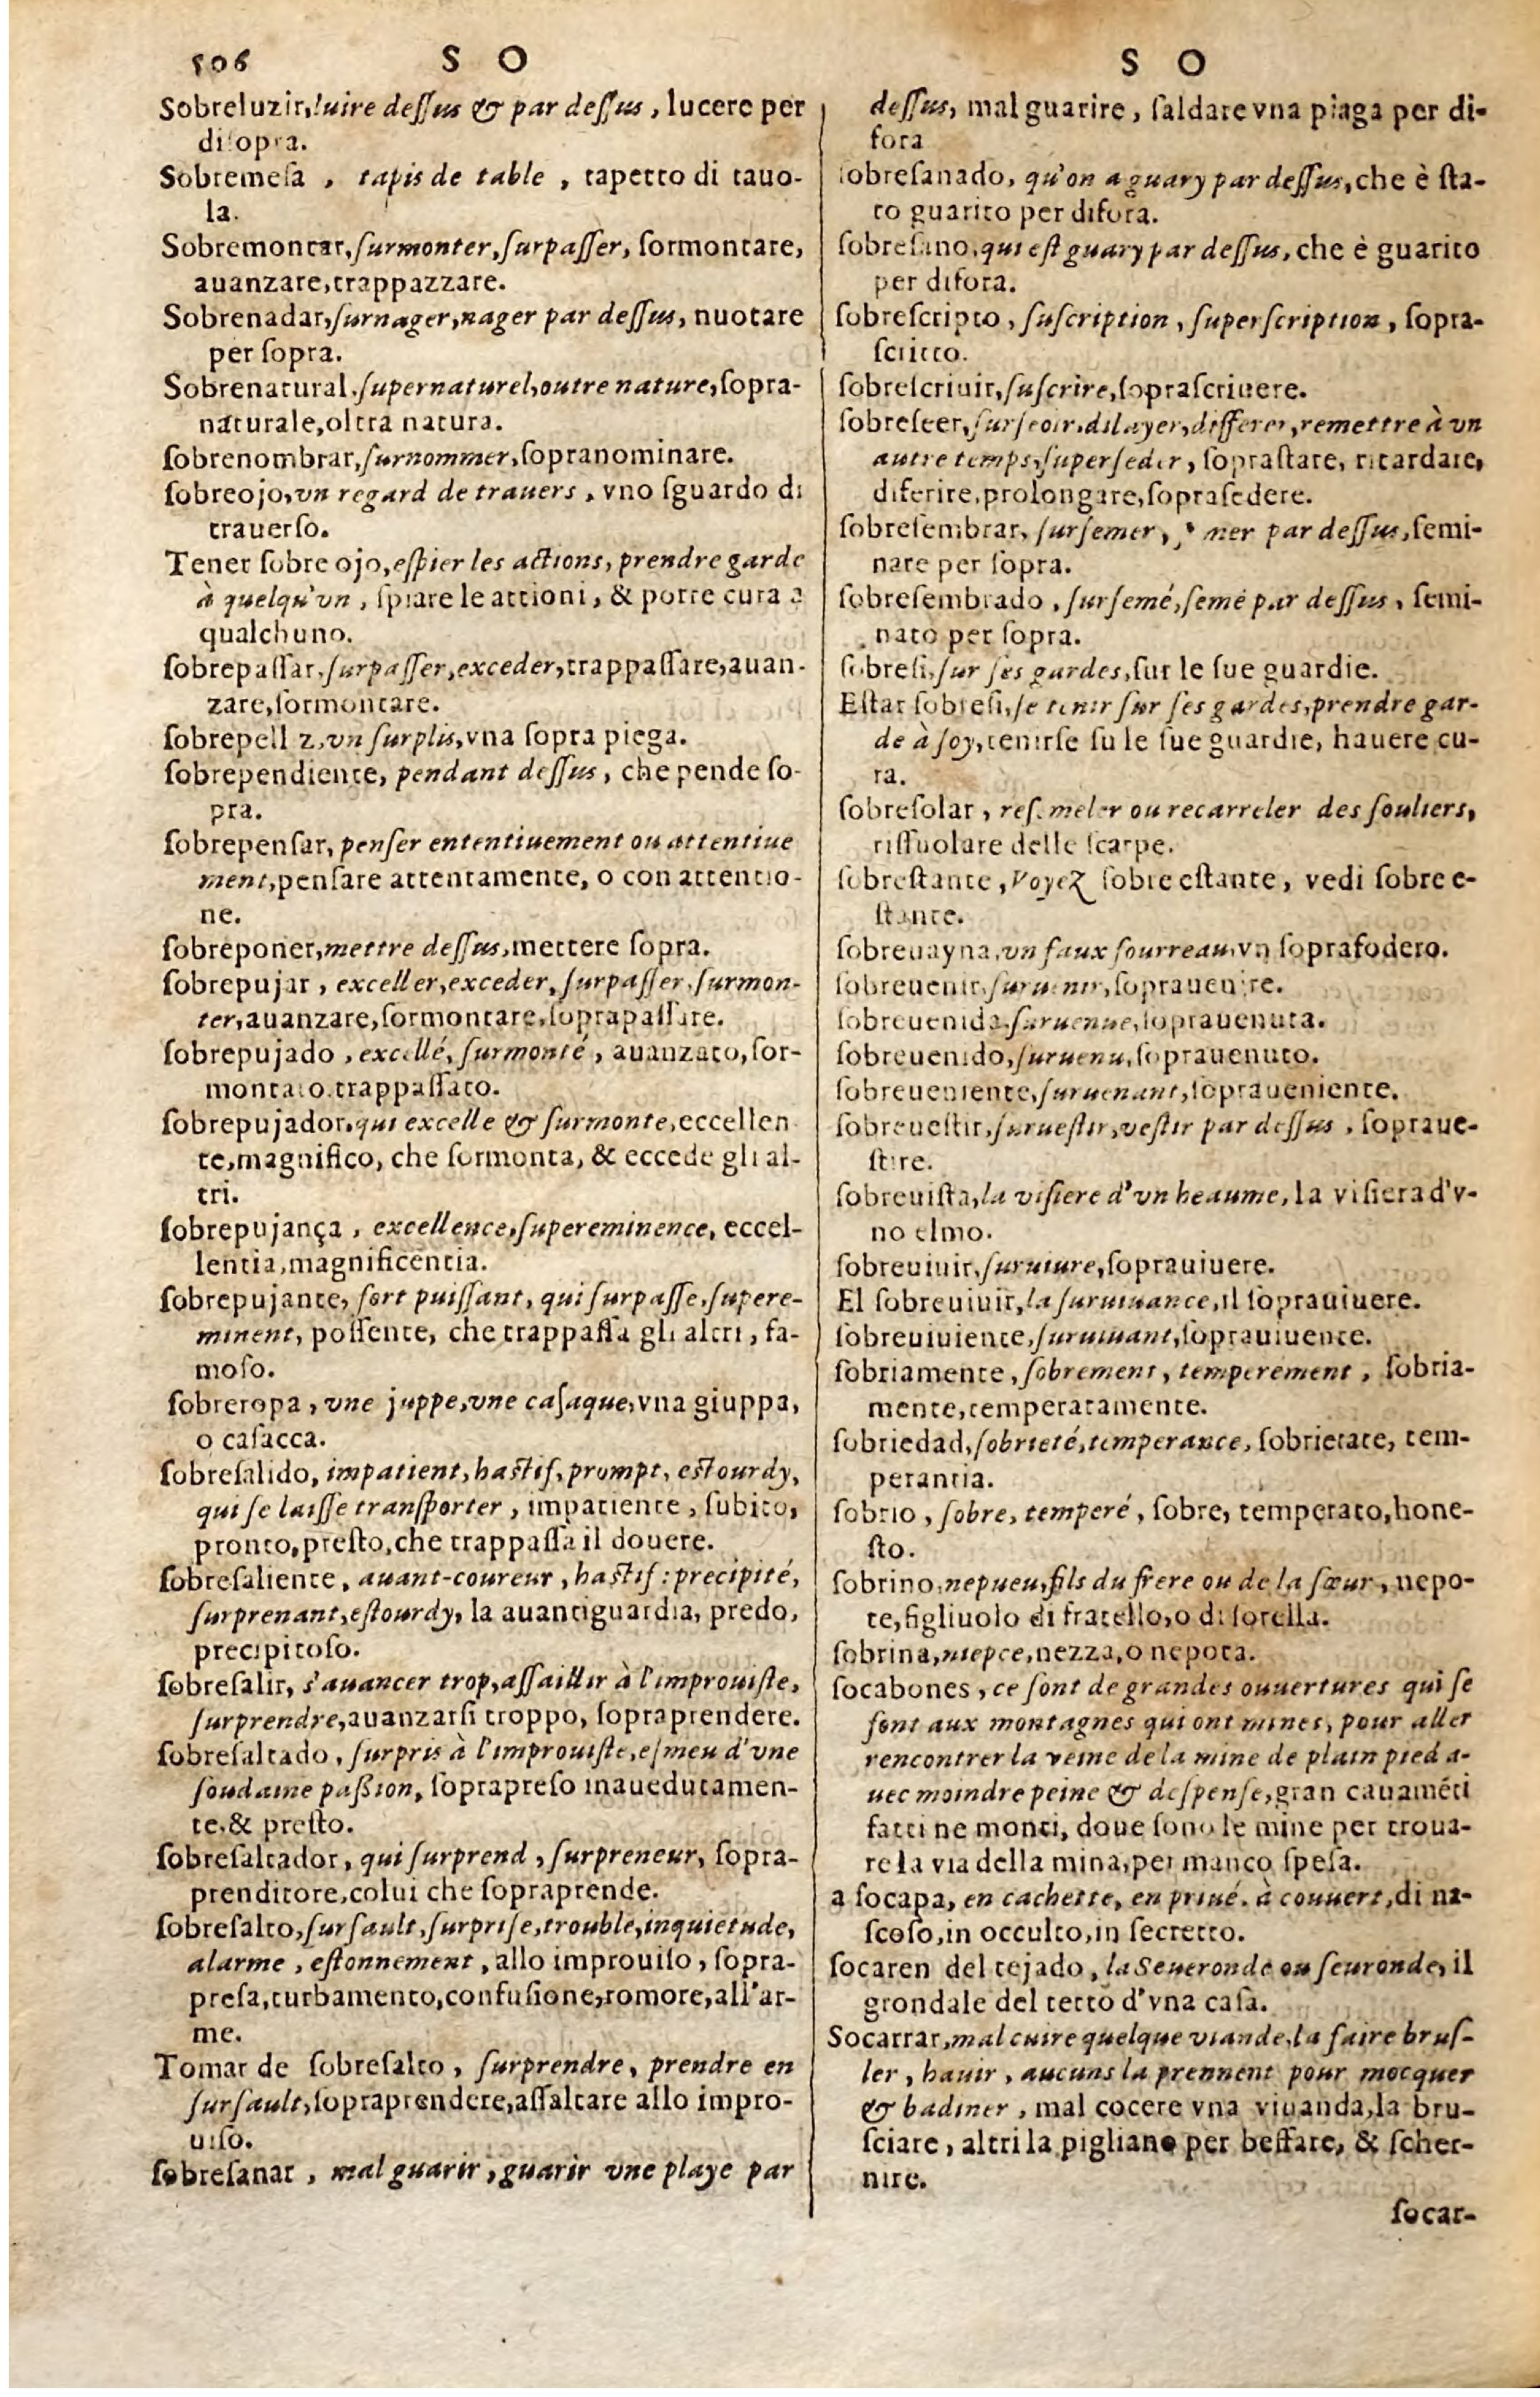 506 S O
Sobreluzir, luire deſſus & par deſſus, lucere per
diſopra.
Sobremeſa, tapis de table, tapetto di tauo-
la.
Sobremontar, ſurmonter, ſurpaſſer, ſormontare,
auanzare, trappazzare.
Sobrenadar, ſurnager, nager par deſſus, nuotare
per ſopra.
Sobrenatural, ſupernaturel, outre nature, ſopra-
naturale, oltra natura.
ſobrenombrar, ſurnommer, ſopranominare.
ſobreojo, vn regard de trauers, vno ſguardo di
trauerſo.
Tener ſobre ojo, eſpier les actions, prendre garde
à quelqu'vn, ſpiare le attioni, & porre cura a
qualchuno.
ſobrepaſſar, ſurpaſſer, exceder, trappaſſare, auan-
zare, ſormontare.
ſobrepell z, vn ſurplis, vna ſopra piega.
ſobrependiente, pendant deſſus, che pende ſo-
pra.
ſobrepenſar, penſer ententiuement ou attentiue
ment, penſare attentamente, o con attentio-
ne.
ſobreponer, mettre deſſus, mettere ſopra.
ſobrepujar, exceller, exceder, ſurpaſſer, ſurmon-
ter, auanzare, ſormontare, ſoprapaſſare.
ſobrepujado, excellé, ſurmonté, auanzato, ſor-
montato, trappaſſato.
ſobrepujador, qui excelle & ſurmonte, eccellen
te, magnifico, che ſormonta, & eccede gli al-
tri.
ſobrepujança, excellence, ſupereminence, eccel-
lentia, magnificentia.
ſobrepujante, fort puiſſant, qui ſurpaſſe, ſupere-
minent, poſſente, che trappaſſa gli altri, fa-
moſo.
ſobreropa, vne juppe, vne caſaque, vna giuppa,
o caſacca.
ſobreſalido, impatient, haſtif, prompt, eſtourdy,
qui ſe laiſſe tranſporter, impatiente, ſubito,
pronto, preſto, che trappaſſa il douere.
ſobreſaliente, auant-coureur, haſtif: precipité,
ſurprenant, eſtourdy, la auantiguardia, predo,
precipitoſo.
ſobreſalir, s'auancer trop, aſſaillir à l'improuiſte,
ſurprendre, auanzarſi troppo, ſopraprendere.
ſobreſaltado, ſurpris à l'improuiſte, eſmeu d'vne
ſoudaine paſſion, ſoprapreſo inauedutamen-
te, & preſto.
ſobreſaltador, qui ſurprend, ſurpreneur, ſopra-
prenditore, colui che ſopraprende.
ſobreſalto, ſurſault, ſurpriſe, trouble, inquietude,
alarme, eſtonnement, allo improuiſo, ſopra-
preſa, turbamento, confuſione, romore, all'ar-
me.
Tomar de ſobreſalto, ſurprendre, prendre en
ſurſault, ſopraprendere, aſſaltare allo impro-
uiſo.
ſobreſanar, mal guarir, guarir vne playe par
S O
deſſus, mal guarire, ſaldare vna piaga per di-
fora
ſobreſanado, qu'on a guary par deſſus, che è ſta-
to guarito per difora.
ſobreſano, qui eſt guary par deſſus, che è guarito
per difora.
ſobreſcripto, ſuſcription, ſuperſcription, ſopra-
ſcritto.
ſobreſcriuir, ſuſcrire, ſopraſcriuere.
ſobreſeer, ſurſeoir, dilayer, differer, remettre à vn
autre temps, ſuperſeder, ſopraſtare, ritardare,
diferire, prolongare, ſopraſedere.
ſobreſembrar, ſurſemer, mer par deſſus, ſemi-
nare per ſopra.
ſobreſembrado, ſurſemé, ſemé par deſſus, ſemi-
nato per ſopra.
ſobreſi, ſur ſes gardes, ſur le ſue guardie.
Eſtar ſobreſi, ſe tenir ſur ſes gardes, prendre gar-
de à ſoy, tenirſe ſu le ſue guardie, hauere cu-
ra.
ſobreſolar, reſemeler ou recarreler des ſouliers,
riſſuolare delle ſcarpe.
ſobreſtante, Voyez ſobre eſtante, vedi ſobre e-
ſtante.
ſobreuayna, vn faux fourreau, vn ſoprafodero.
ſobreuenir, ſuruenir, ſoprauenire.
ſobreuenida, ſuruenue, ſoprauenuta.
ſobreuenido, ſuruenu, ſoprauenuto.
ſobreueniente, ſuruenant, ſopraueniente.
ſobreueſtir, ſurueſtir, veſtir par deſſus, ſopraue-
ſtire.
ſobreuiſta, la viſiere d'vn heaume, la viſiera d'v-
no elmo.
ſobreuiuir, ſuruiure, ſoprauiuere.
El ſobreuiuir, la ſuruiuance, il ſoprauiuere.
ſobreuiuiente, ſuruiuant, ſoprauiuente.
ſobriamente, ſobrement, temperement, ſobria-
mente, temperatamente.
ſobriedad, ſobrieté, temperance, ſobrietate, tem-
perantia.
ſobrio, ſobre, temperé, ſobre, temperato, hone-
ſto.
ſobrino, nepueu, fils du frere ou de la ſœur, nepo-
te, figliuolo di fratello, o di ſorella.
ſobrina, niepce, nezza, o nepota.
ſocabones, ce ſont de grandes ouuertures qui ſe
font aux montagnes qui ont mines, pour aller
rencontrer la veine de la mine de plain pied a-
uec moindre peine & deſpenſe, gran cauaméti
fatti ne monti, doue ſono le mine per troua-
re la via della mina, per manco ſpeſa.
a ſocapa, en cachette, en priué, à couuert, di na-
ſcoſo, in occulto, in ſecretto.
ſocaren del tejado, la Seueronde ou ſeuronde, il
grondale del tetto d'vna caſa.
Socarrar, mal cuire quelque viande, la faire bruſ-
ler, hauir, aucuns la prennent pour mocquer
& badiner, mal cocere vna viuanda, la bru-
ſciare, altri la pigliano per beffare, & ſcher-
nire.
ſocar-